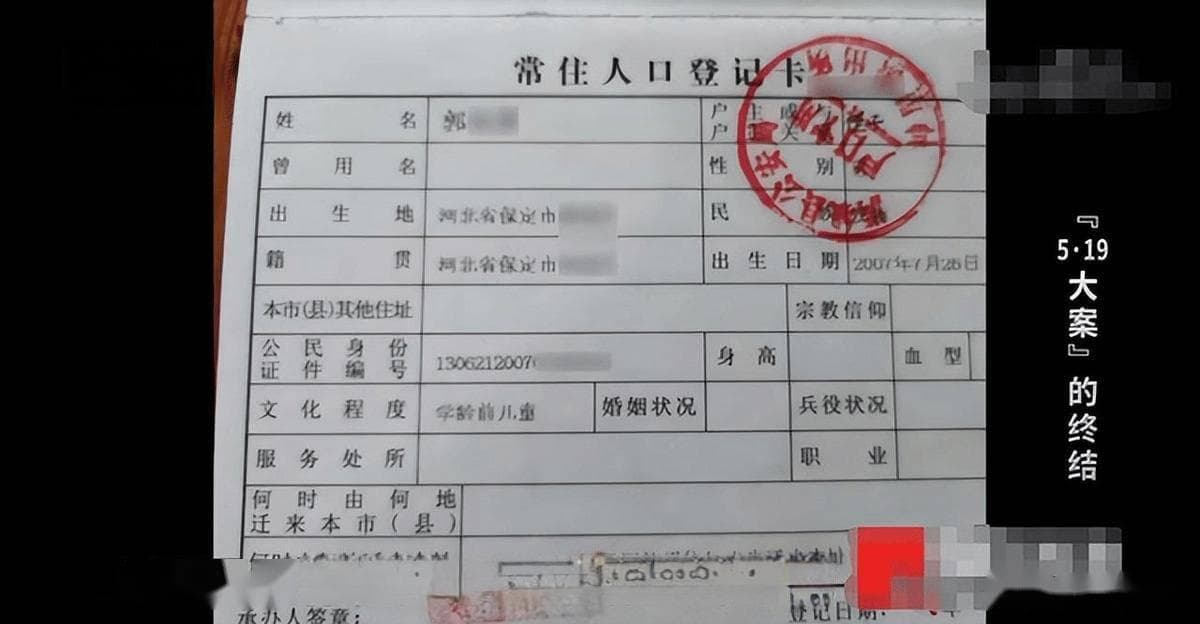 常住人口登记卡
姓名 郭 户主或与户主关系 侄子
曾用名 性别
出生地 河北省保定市 民族
籍贯 河北省保定市 出生日期 2007年7月26日
本市(县)其他住址 宗教信仰
公民身份证件编号 1306212007 身高 血型
文化程度 学龄前儿童 婚姻状况 兵役状况
服务处所 职业
何时由何地迁来本市(县)
承办人签章: 登记日期:
县公安局
户口专用
『5·19大案』的终结